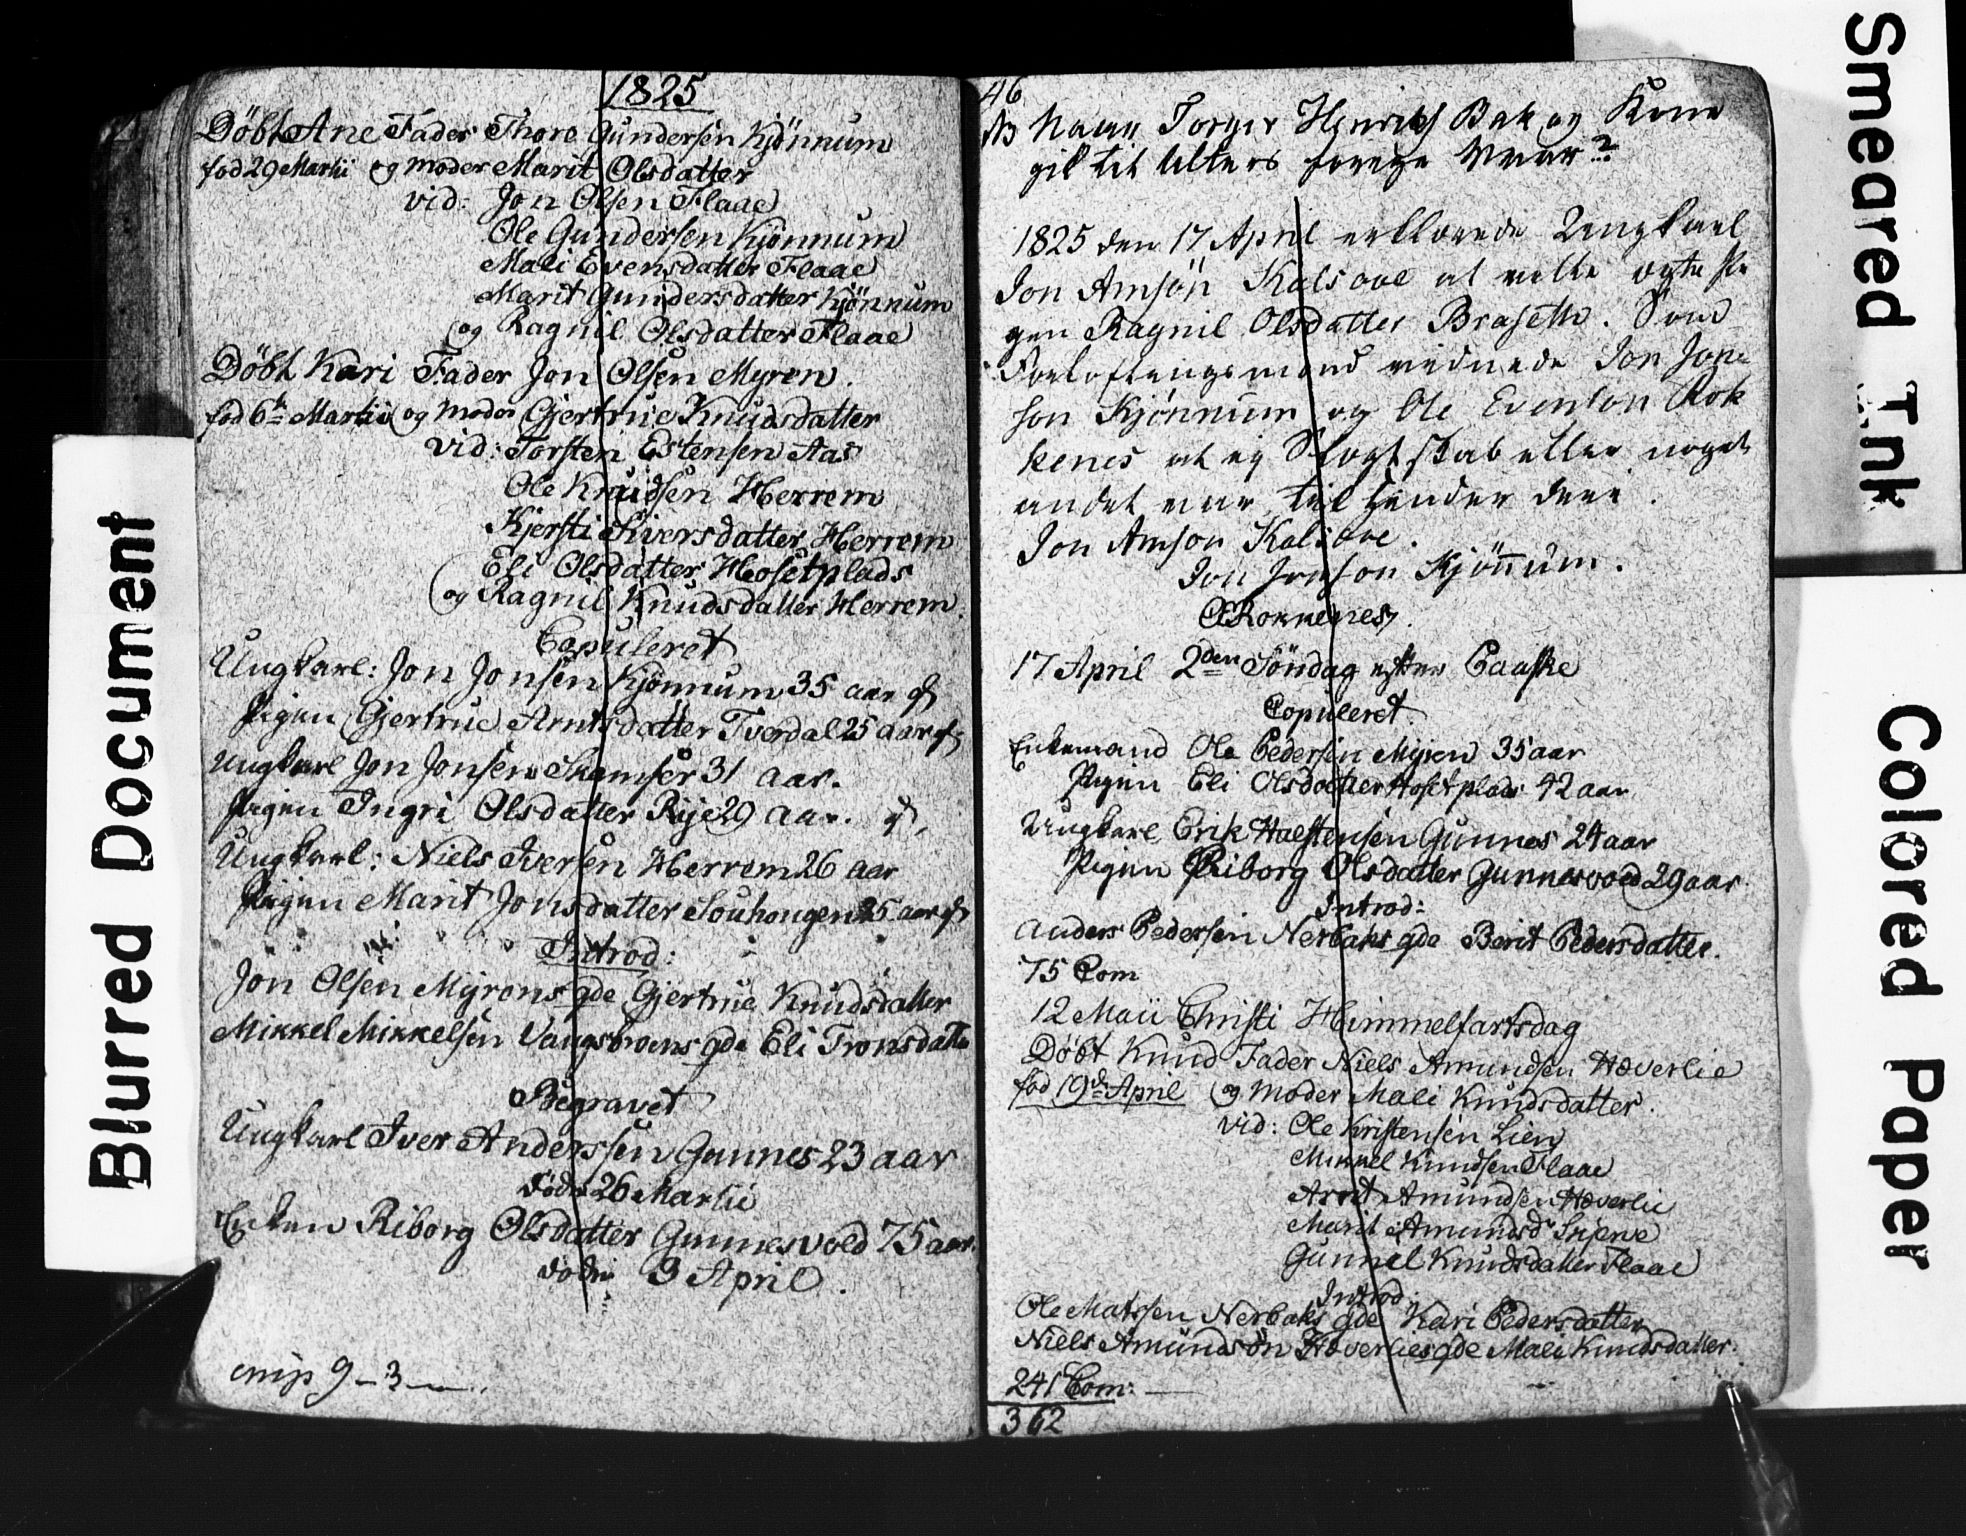 1825
Döbt Ane Fader Thore Gundersen Kjönnum
föd 29 Martii og moder Marit Olsdatter
vid: Jon Olsen Flaae
Ole Gundersen Kjönnum
Mali Evensdatter Flaae
Marit Gundersdatter Kjönnum
og Ragnil Olsdatter Flaae
Döbt Kari Fader Jon Olsen Myren.
föd 6te Martii og moder Gjertrue Knudsdatter
vid: Torsten Estensen Aas
Ole Knudsen Herrem
Kjersti Siversdatter Herrem
Eli Olsdatter Hosetplads
og Ragnil Knudsdatter Herrem.
Copuleret
Ungkarl: Jon Jonsen Kjönnum 35 aar og
Pigen Gjertrue Arntsdatter Tverdal 25 aar og
Ungkarl Jon Jonsen Skamfer 31 aar.
Pigen Ingri Olsdatter Rije 29 aar. og
Ungkarl: Niels Iversen Herrem 26 aar
Pigen Marit Jonsdatter Souhougen 25 aar og
Introd:
Jon Olsen Myrens qde Gjertrue Knudsdatter
Mikkel Mikkelsen Vangsbroens qde Eli Tronsdatter
Begravet
Ungkarl Iver Anderssen Gunnes 23 aar
döde 26 Martii
Enken Riborg Olsdatter Gunnesvold 75 aar.
döde 3 April.
9-3
46
NB Naar Torger Henrichs Bak og Kone
gik til Alters forrige Vaar?
1825 den 17 April erklærede Ungkarl
Jon Amsön Kalsave at ville ægte Pi
gen Ragnil Olsdatter Braseth. Som
Forloftningsmænd vidnede Jon Jon
son Kjönnum og Ole Evenson Rok
kenes at ej Slegtskab eller noget
andet var til hinder deri.
Jon Amson Kalsave.
Jon Jonson Kjönnum.
O E Rokkenes.
17 April 2den Söndag efter Paaske
Copuleret.
Enkemand Ole Pedersen Myren 35 aar
Pigen Eli Olsdatter Hosetplads 42 aar
Ungkarl Erik Halstensen Gunnes 24 aar
Pigen Riborg Olsdatter Gunnesvold 29 aar
Introd:
Anders Pedersen Nerbaks qde Berit Pedersdatter.
75 Com
12 Maii Christi Himmelfartsdag
Döbt Knud Fader Niels Amundsen Hæverlie
föd 19de April og Moder Mali Knudsdatter.
vid: Ole Kristensen Lien
Mikkel Knudsen Flaae
Arnt Amundsen Hæverlie
Marit Amundsdr Snjerve
Gunnel Knudsdatter Flaae
Introd:
Ole Matssen Nerbaks qde Kari Pedersdatter
Niels Amundsön Hæverlies qde Mali Knudsdatter.
241 Com:
362
Blurred Document
Smeared Ink
Colored Paper